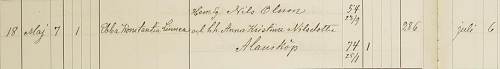 Hemtg Nils Olsson 54
29/9
18 Maj 7 1 Ebba Konstantia Linnea och h. Anna Kristina Nilsdotter 286 juli 6
Manskög 74 1
25/1